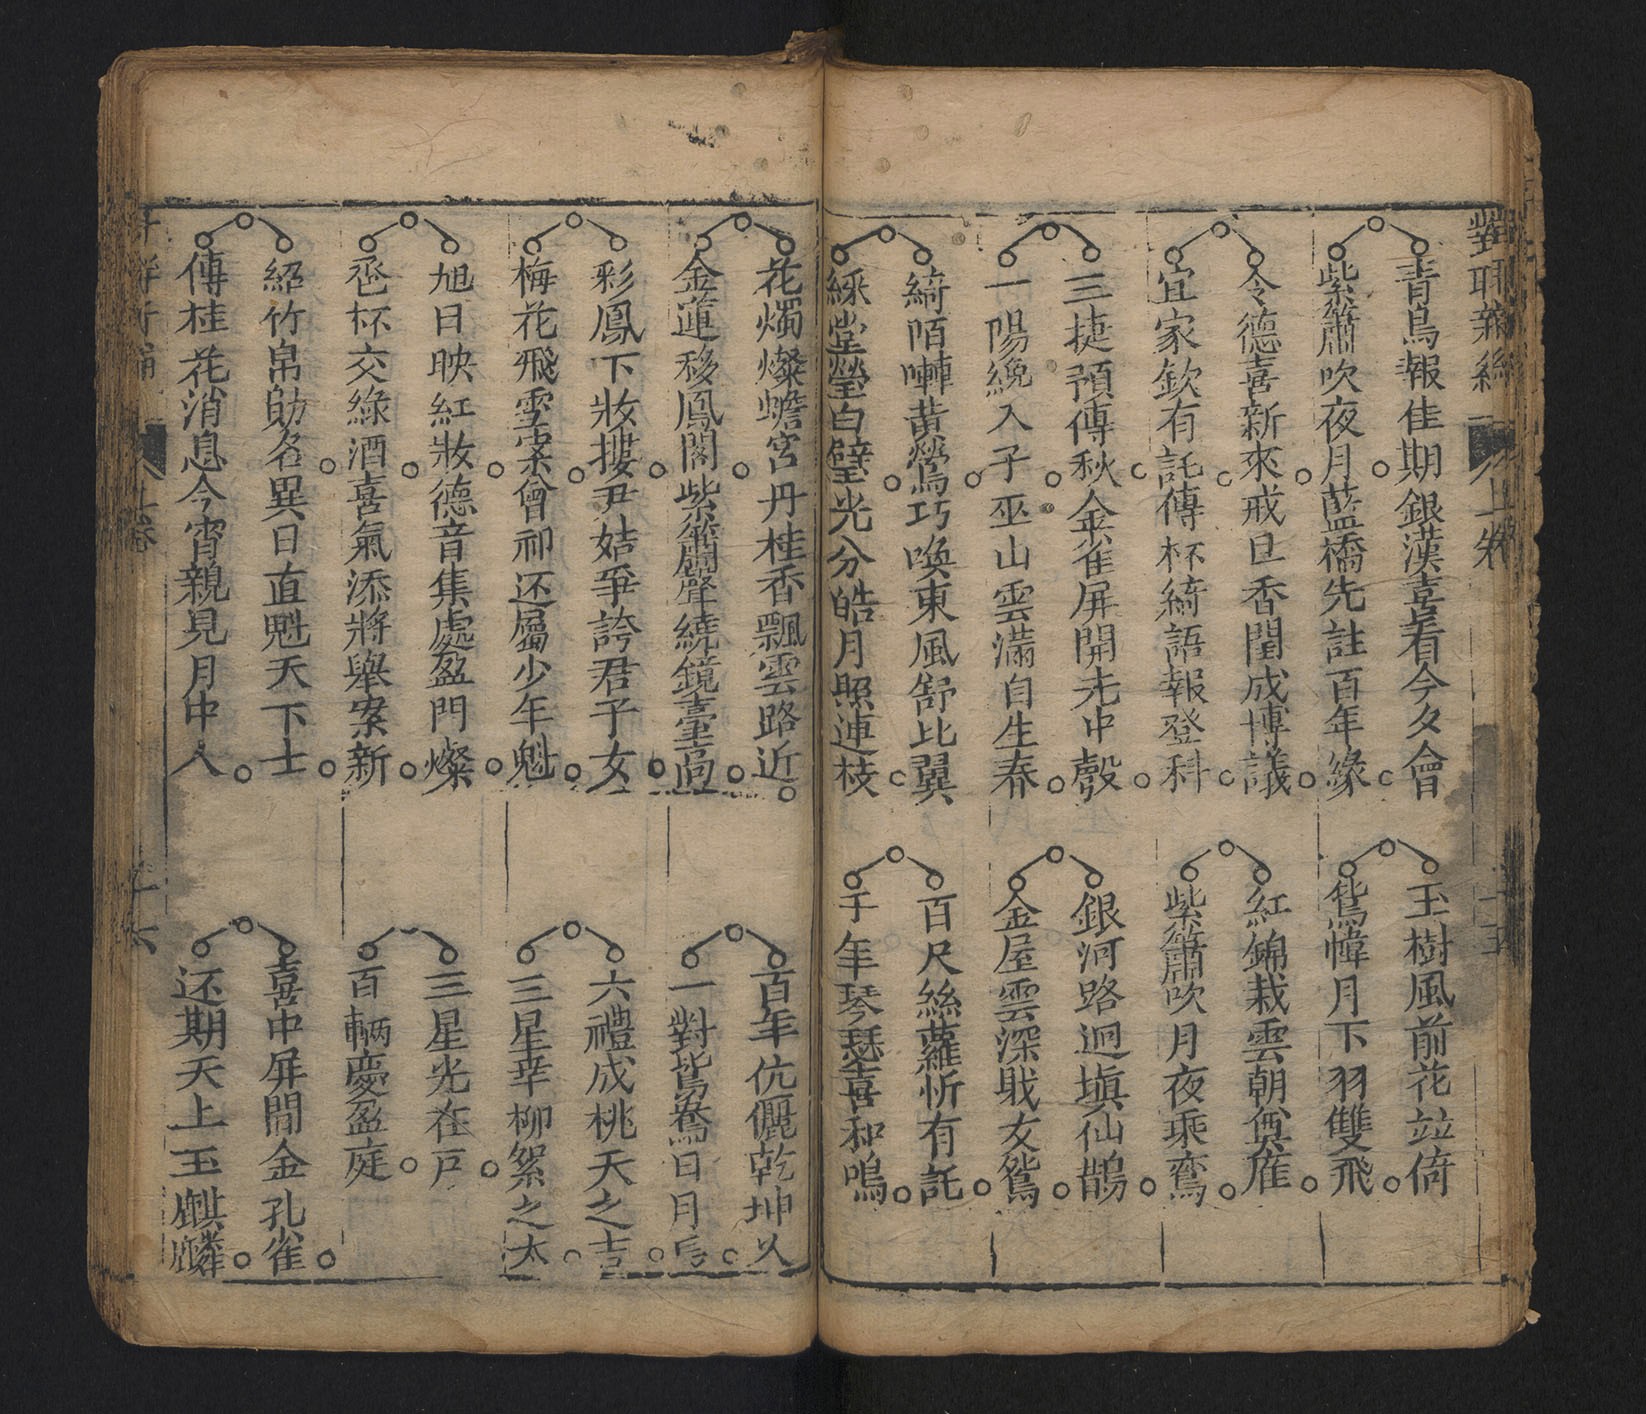 青鳥報佳期銀漢喜看今夕會
紫簫吹夜月藍橋先註百年緣
令德喜新來戒旦香閨成博議
宜家欽有託傳杯綺語報登科
三捷預傳秋金雀屏開先中彀
一陽纔入子巫山雲滿自生春
綺陌囀黃鶯巧喚東風舒比翼
綵堂瑩白璧光分皓月照連枝
玉樹風前花竝倚
鴛幃月下羽雙飛
紅錦裁雲朝奠雁
紫簫吹月夜乘鸞
銀河路迥填仙鵲
金屋雲深戝友鴛
百尺絲蘿忻有託
千年琴瑟喜和鳴
花燭燦蟾宮丹桂香飄雲路近
金蓮移鳳閣紫簫聲繞鏡臺高
彩鳳下妝摟尹姞爭誇君子女
梅花飛雪案曾祁还屬少年魁
旭日映紅妝德音集處盈門燦
卺杯交綠酒喜氣添將舉案新
紹竹帛勛名異日直魁天下士
傳桂花消息今宵親見月中人
百年伉儷乾坤久
一對鴛鴦日月長
六禮成桃夭之吉
三星幸柳絮之太
三星光在戸
百輛慶盈庭
喜中屏間金孔雀
还期天上玉麒麟